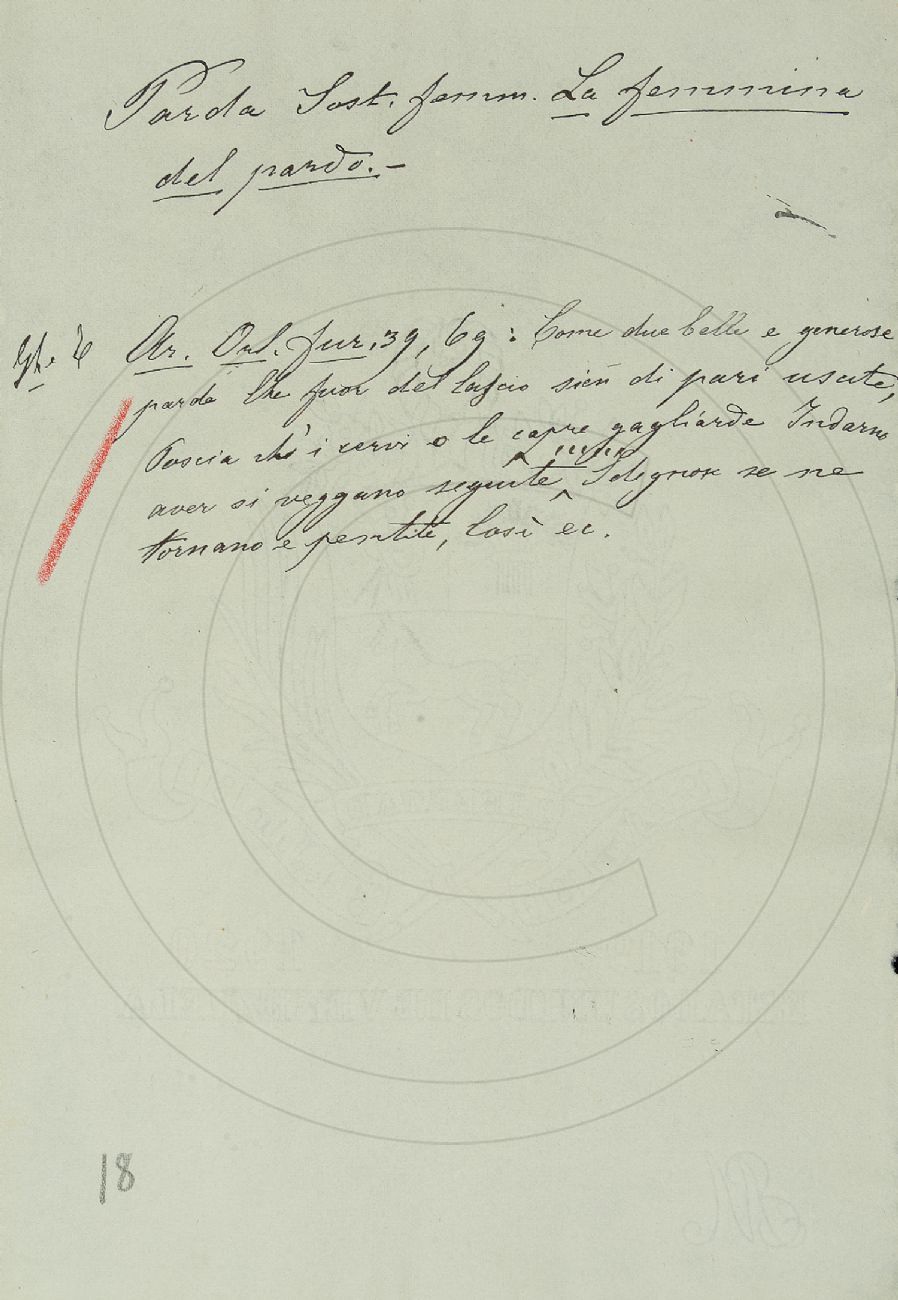 Parda Sost. femm. La femmina
del pardo. —
Ar. Orl. Fur. 39, 69: Come due belle e generose
parde Che fuor del lascio sien di pari uscite,
Poscia ch' i cervi o le capre gagliarde Indarno
aver si veggano seguite, Sdegnose se ne
tornano e pentite, Così ec.
18